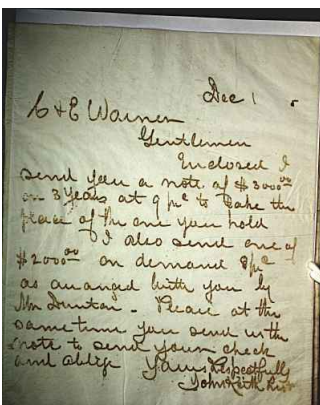 Dec 1
C & E Warner
Gentlemen
Enclosed I
send you a note of $3000.00
on 3 years at 9 pc to take the
place of the one you hold
I also send one of
$2000.00 on demand 8 pc
as arranged with you by
Mr Dunton - Please at the
same time you send with
note to send your check
and oblige Yours Respectfully
John Keith